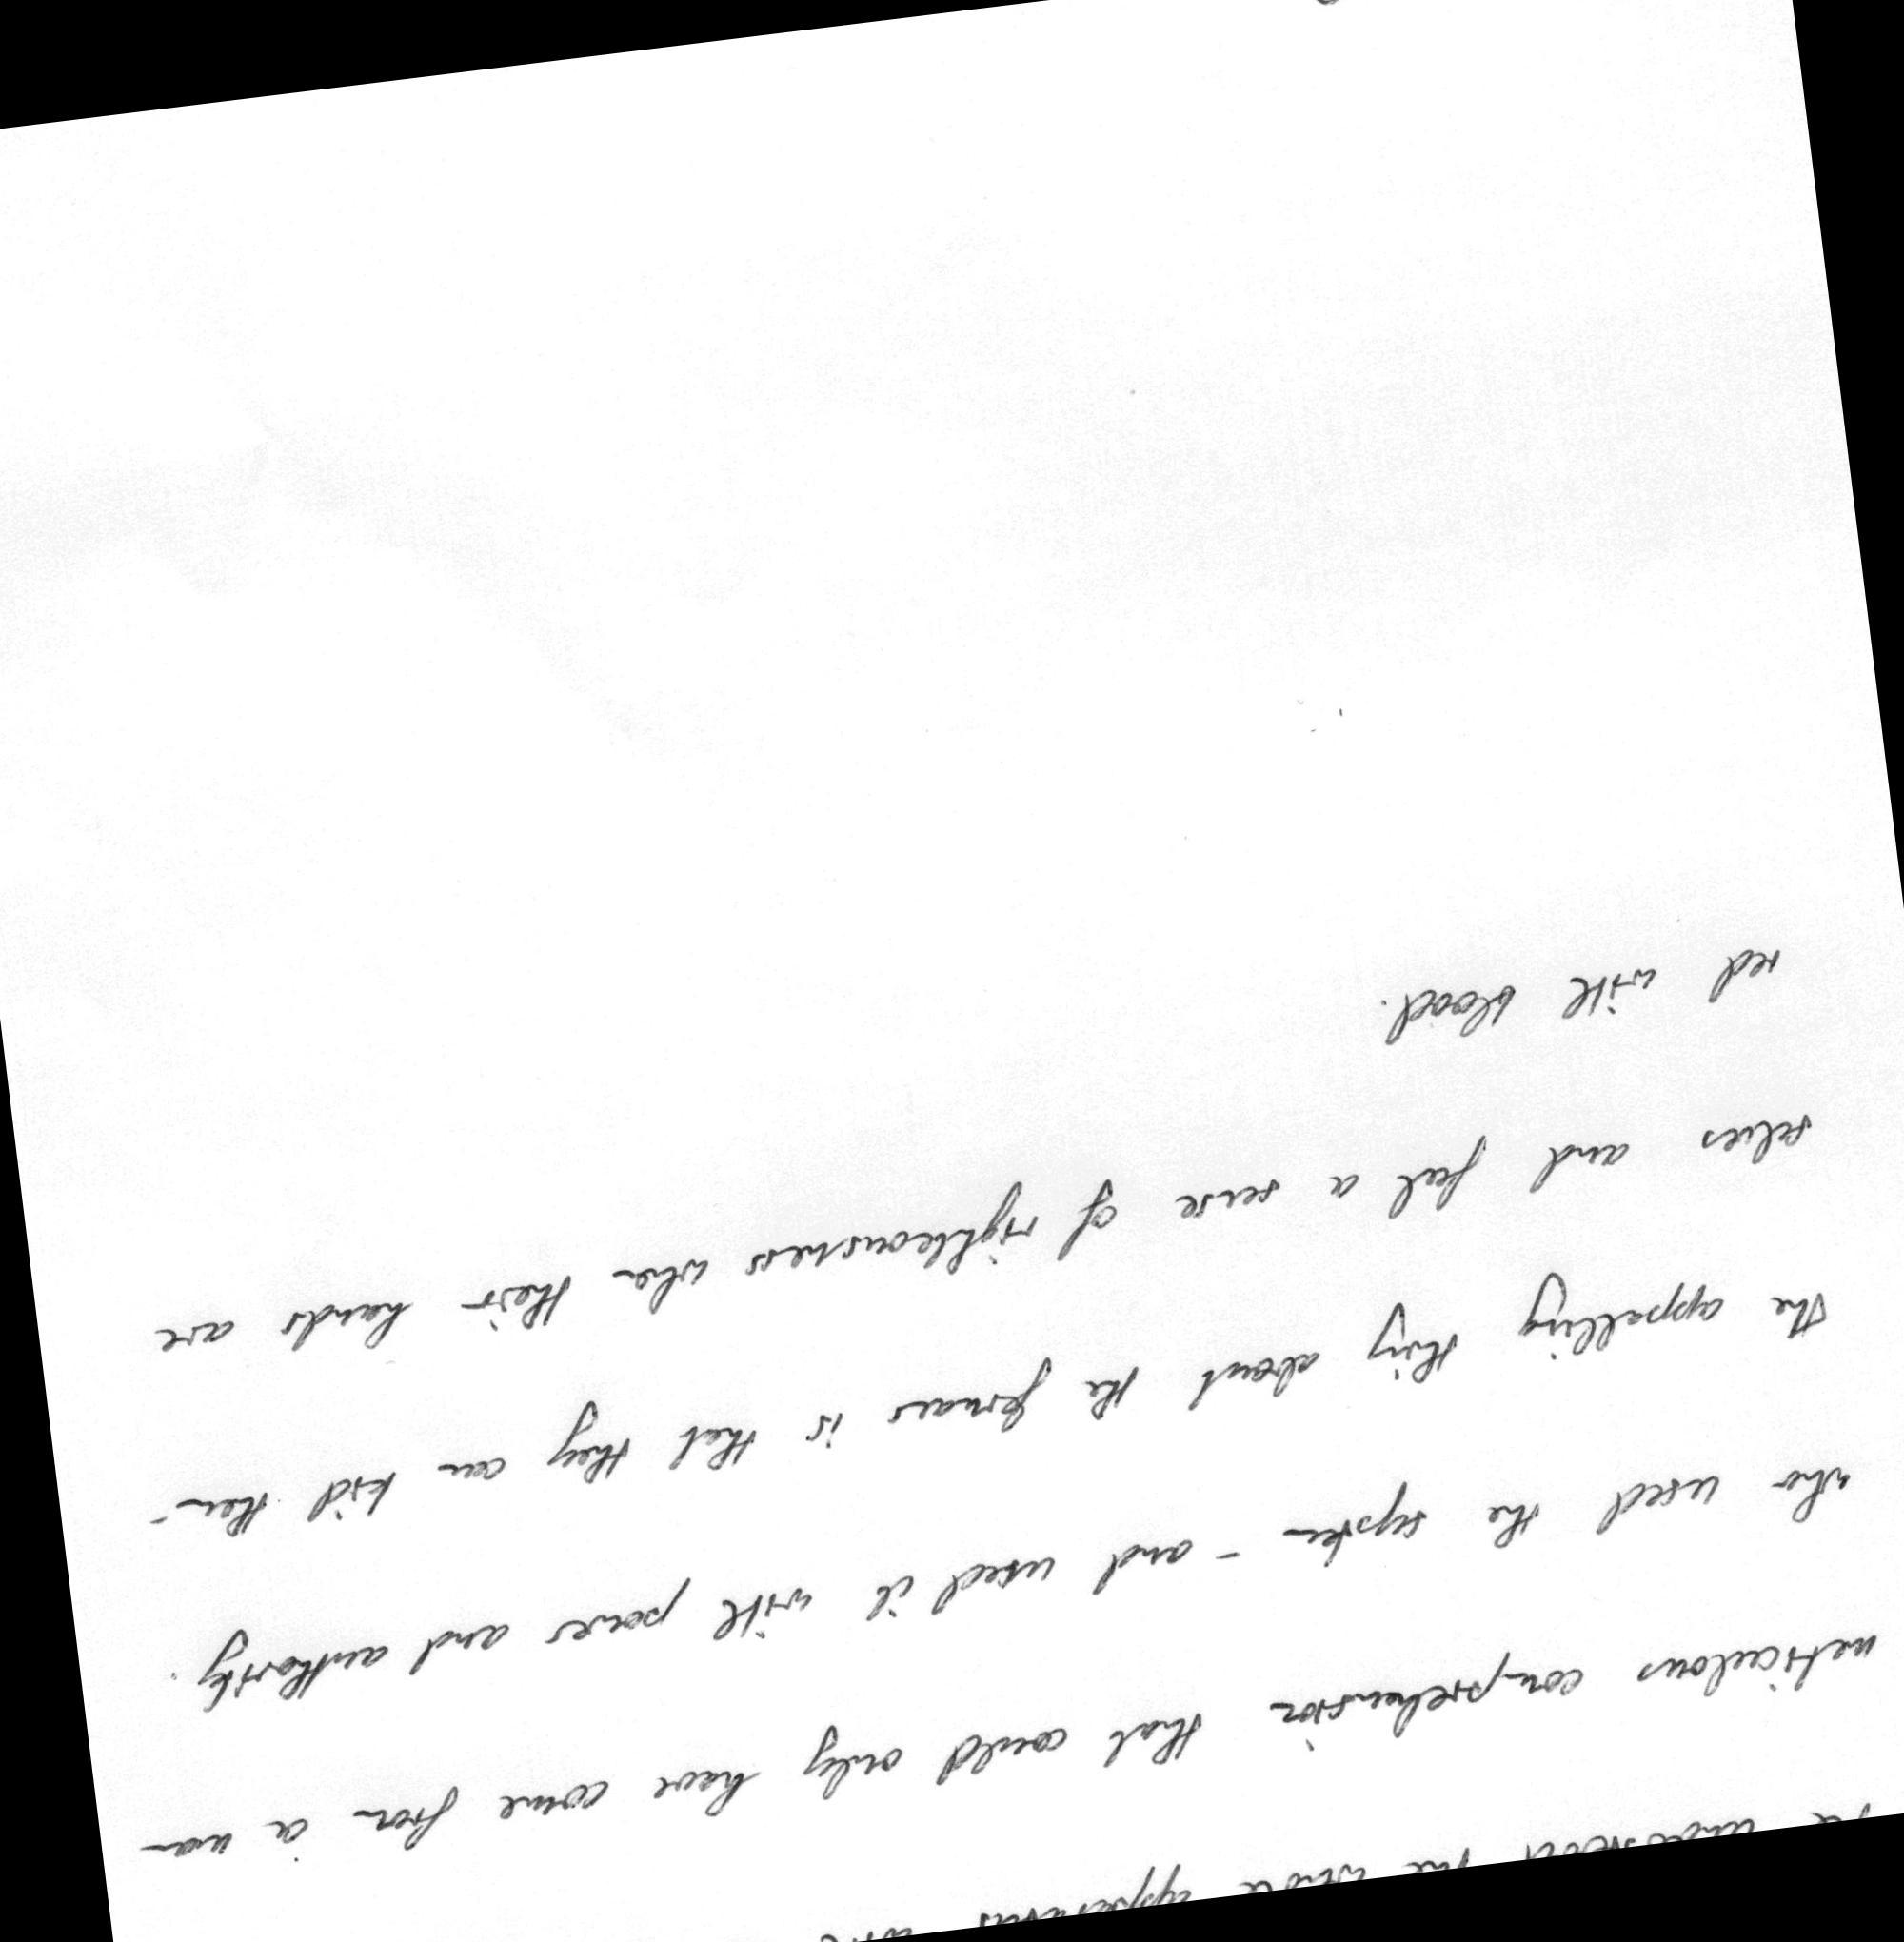 He understood the whole apparatus with
meticulous comprehension that could only have come from a man
who used the system - and used it with power and authority.
The appalling thing about the females is that they can kid them-
selves and feel a sense of righteousness when their hands are
red with blood.